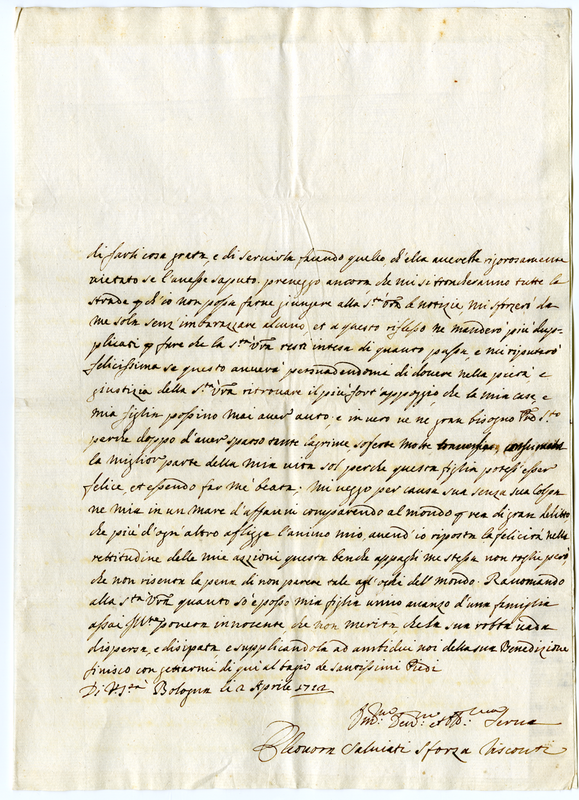 di farli cosa grata, e di servirla facendo quello ch'ella avrebbe rigorosamente
vietato se l'avesse saputo. preveggo ancora che mi si tronderanno tutte le
strade che io non possa farne giungere alla S.tà V.ra d notizie, mi sforzerò da
me sola senz'imbarazzare alcuno, et a questo riflesso ne manderò più
plicati fare che la S.tà V.ra resti intesa di quanto passa, e mi riputerò
felicissima se questo averrà persuadendomi di dovere nella pietà, e
giustizia della S.tà V.ra ritrovare il più fort'appoggio che la mia casa, e
mia figlia possino mai aver auto, e in vero ve ne gran bisogno
perche doppo d'aver sparso tante lagrime soferte molte
la miglior parte della mia vita sol perche questa figlia potess'esser
felice, et essendo far me beata; Mi veggo per causa sua senza sua colpa
ne mia in un mare d'affanni comparendo al mondo rea di gran delitto
che più d'ogn'altro afligge l'animo mio, avend'io riposta la felicità nella
rettitudine delle mie azzioni questa benche appaghi me stessa non toglie però
che non risenta la pena di non parere tale agl'ochi dell Mondo. Racomando
alla S.tà V.ra quanto so e posso mia figlia unico avanzo d'una famiglia
assai povera innocente che non merita che la sua robba vada
dispersa, e disipata e suplicandola ad ambidue noi della sua Benedizione
finisco con gettarmi di qui al bagio de Santissimi Piedi
Di V.S.tà Bologna li 2 Aprile 1712
Serva
Eleonora Salviati Sforza Visconti